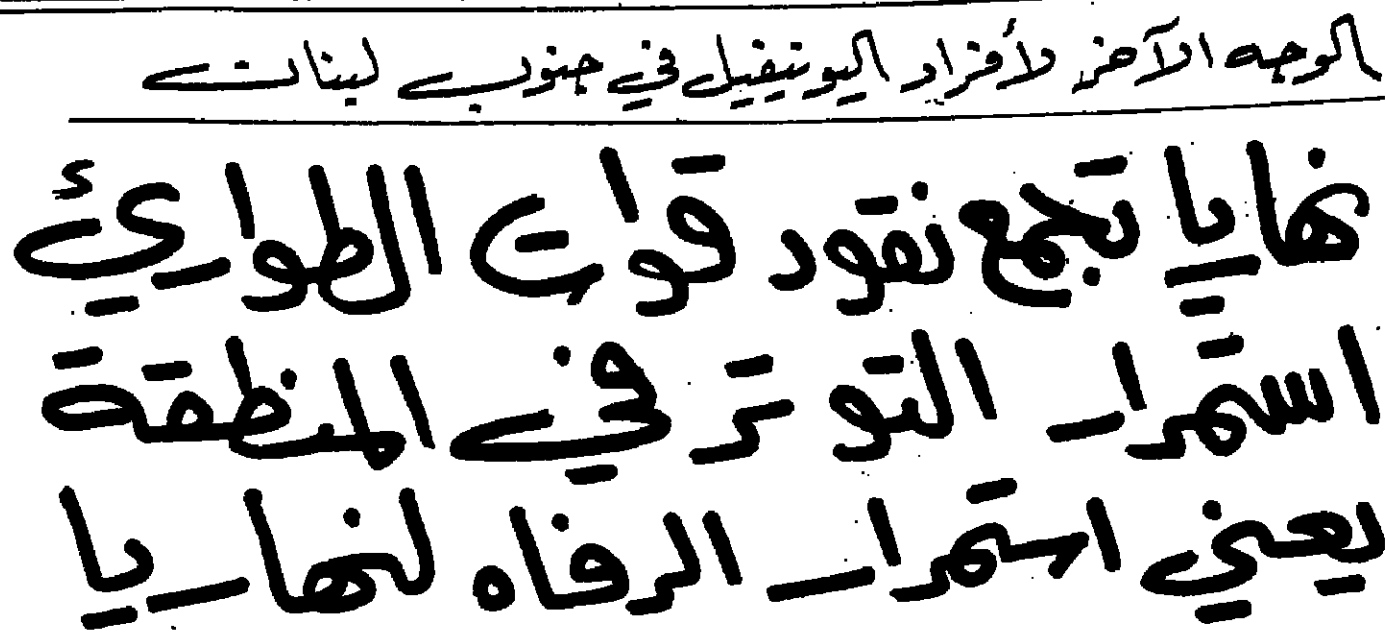 الوجه الآخر لأفراد اليونيفيل في جنوب لبنان
نهاريا تجمع نقود قوات الطوارئ
استمرار التوتر في المنطقة
يعني استمرار الرفاه لنهاريا